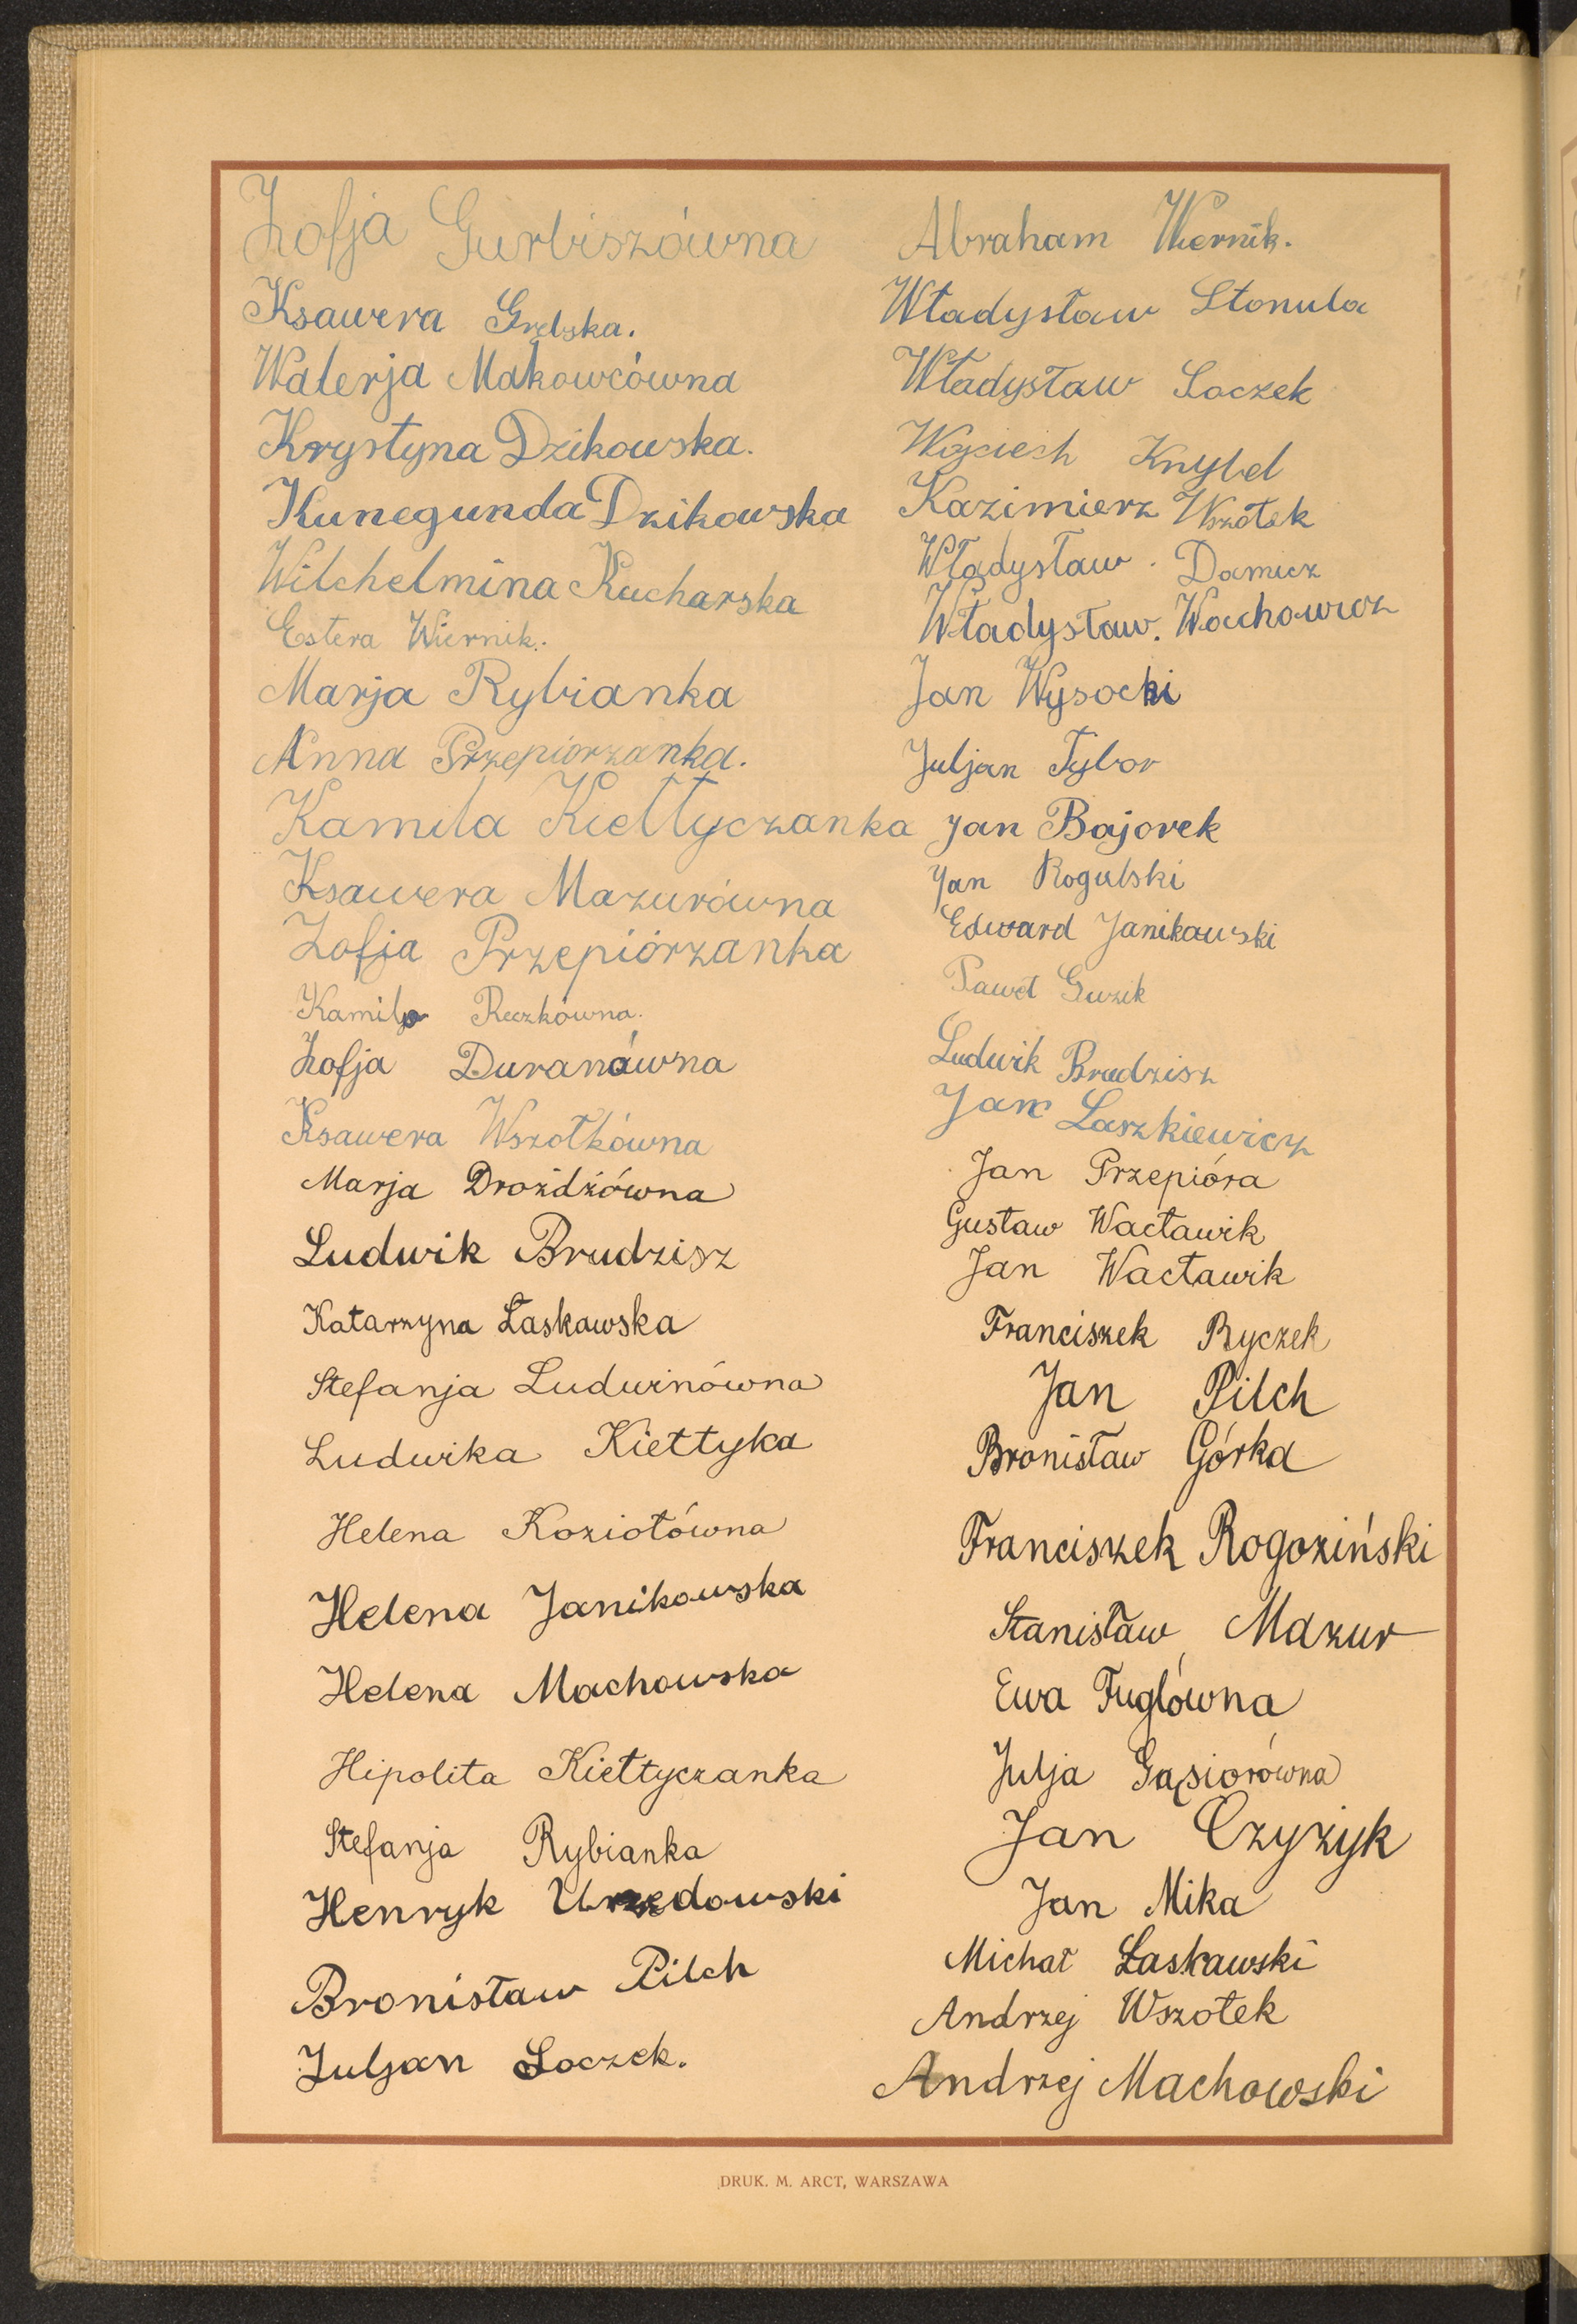 Zofja Gurbiszówna
Ksawera Grelska.
Walerja Makowcówna
Krystyna Dzikowska.
Kunegunda Dzikowska
Wilchelmina Kucharska
Estera Wiernik.
Marja Rybianka
Anna Przepiórzanka.
Kamila Kiełtyczanka
Ksawera Mazurówna
Zofja Przepiórzanka
Kamila Reczkówna.
Zofja Duranówna
Ksawera Wszołkówna
Marja Drożdżówna
Ludwik Brudzisz
Katarzyna Łaskawska
Stefanja Ludwinówna
Ludwika Kiełtyka
Helena Koziołówna
Helena Janikowska
Helena Machowska
Hipolita Kiełtyczanka
Stefanja Rybianka
Henryk Urzędowski
Bronisław Pilch
Juljan Soczek.
Abraham Wiernik.
Władysław Stonula
Władysław Soczek
Wojciech Knybel
Kazimierz Wszołek
Władysław Damicz
Władysław. Wachowicz
Jan Wysocki
Juljan Tybor
Jan Bajorek
Jan Rogulski
Edward Janikowski
Paweł Guzik
Ludwik Brudzisz
Jan Laszkiewicz
Jan Przepióra
Gustaw Wacławik
Jan Wacławik
Franciszek Ryczek
Jan Pilch
Bronisław Górka
Franciszek Rogoziński
Stanisław Mazur
Ewa Fuglówna
Julja Gąsiorówna
Jan Czyżyk
Jan Mika
Michał Łaskawski
Andrzej Wszołek
Andrzej Machowski
DRUK. M. ARCT, WARSZAWA